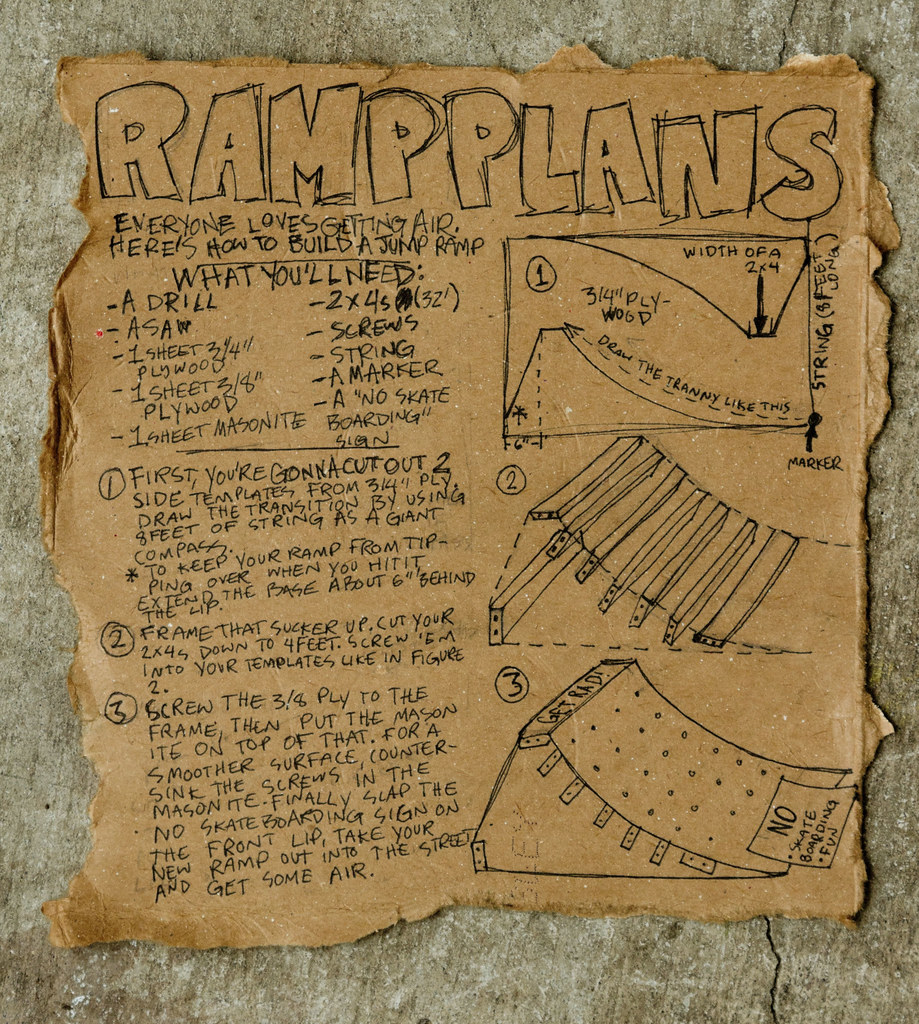 RAMP PLANS
EVERYONE LOVES GETTING AIR.
HERE'S HOW TO BUILD A JUMP RAMP
WHAT YOU'LL NEED:
- A DRILL
- A SAW
- 1 SHEET 3/4"
PLYWOOD
- 1 SHEET 3/8"
PLYWOOD
- 1 SHEET MASONITE
- 2X4s (32')
- SCREWS
- STRING
- A MARKER
- A "NO SKATE
BOARDING"
SIGN
① FIRST, YOU'RE GONNA CUT OUT 2
SIDE TEMPLATES FROM 3/4" PLY.
DRAW THE TRANSITION BY USING
8 FEET OF STRING AS A GIANT
COMPASS.
* TO KEEP YOUR RAMP FROM TIP-
PING OVER WHEN YOU HIT IT
EXTEND THE BASE ABOUT 6" BEHIND
THE LIP.
② FRAME THAT SUCKER UP. CUT YOUR
2X4s DOWN TO 4 FEET. SCREW 'EM
INTO YOUR TEMPLATES LIKE IN FIGURE
2.
③ SCREW THE 3/8 PLY TO THE
FRAME, THEN PUT THE MASON
ITE ON TOP OF THAT. FOR A
SMOOTHER SURFACE, COUNTER-
SINK THE SCREWS IN THE
MASONITE. FINALLY SLAP THE
NO SKATEBOARDING SIGN ON
THE FRONT LIP, TAKE YOUR
NEW RAMP OUT INTO THE STREET
AND GET SOME AIR.
①
WIDTH OF A
2X4
3/4" PLY-
WOOD
STRING (8 FEET
LONG)
DRAW THE TRANNY LIKE THIS
*
6"
MARKER
②
③
GET RAD!
NO
• SKATE
BOARDING
• FUN